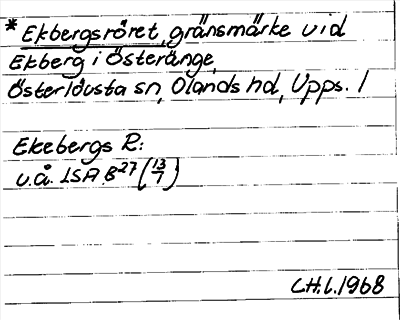 * Ekbergsröret, gränsmärke vid
Ekberg i Österänge,
Österlövsta sn, Olands hd, Upps. l
Ekebergs R:
u.å. LSA B27 (13/7)
CH.L.1968